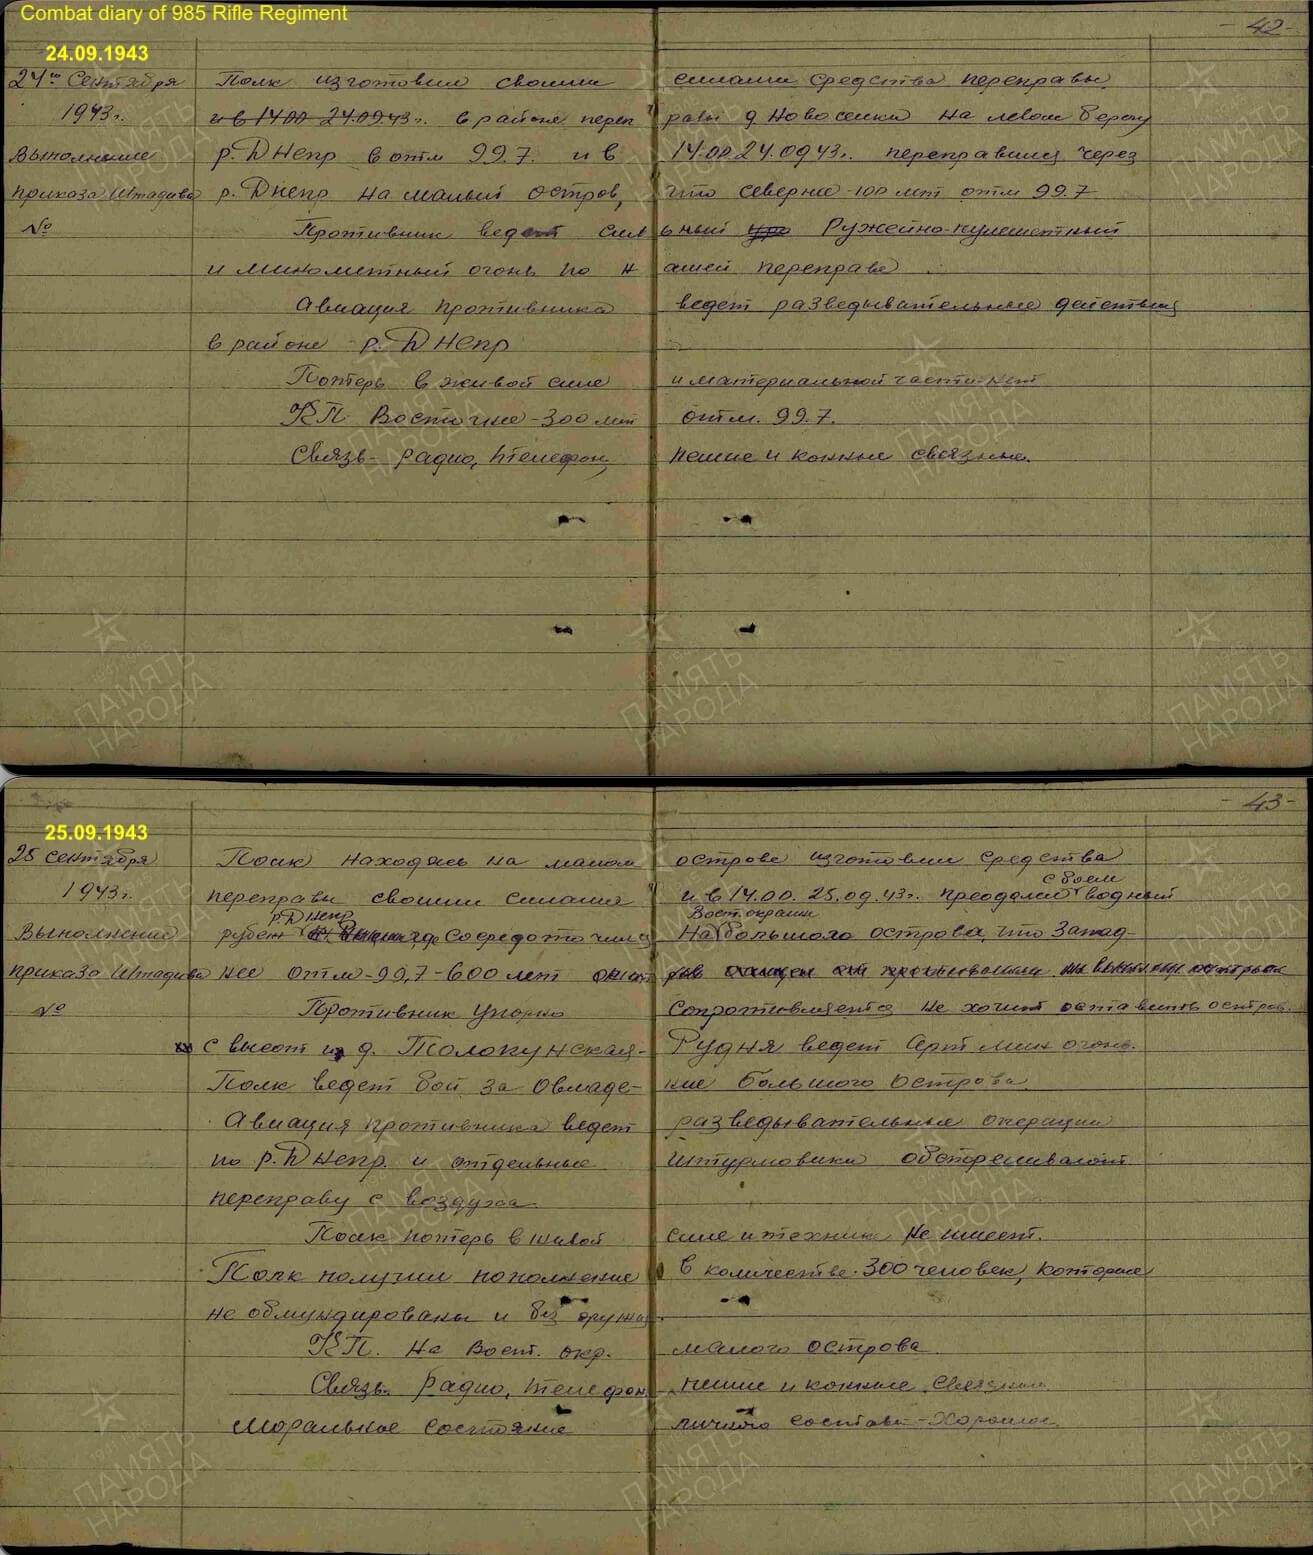 Combat diary of 985 Rifle Regiment
- 42 -
24.09.1943
24го Сентября Полк изготовил своими силами средства переправы
1943г. и в 14.00 24.09.43г. в районе переп равы д Новоселки на левом берегу
Выполнение р. Днепр в отм 99.7. и в 14.00 24.09.43г. переправился через
приказа Штадива р. Днепр на малый остров, что севернее - 100 мт отм 99.7
№ Противник ведет сил ьный Ружейно-пулеметный
и минометный огонь по н ашей переправе
Авиация противника ведет разведывательные действия
в районе р. Днепр
Потерь в живой силе и материальной части - нет
КП Восточнее - 300 мт отм. 99.7.
Связь - радио, телефон, пешие и конные связные.
ПАМЯТЬ НАРОДА
- 43 -
25.09.1943
25 сентября Полк находясь на малом острове изготовил средства
1943г. переправы своими силами и в 14.00. 25.09.43г. преодолел с боем водный
Выполнение рубеж р. Днепр сосредоточился На Вост. окраине большого острова, что запад-
приказа Штадива нее отм - 99,7 - 600 мт
№ Противник упорно сопротивляется не хочит оставить остров.
с высот и д. Толокунская - Рудня ведет Арт мин огонь.
Полк ведет бой за овладе- ние большого острова
Авиация противника ведет разведывательные операции
по р. Днепр и отдельные штурмовики обстреливают
переправу с воздуха
Полк потерь в живой силе и технике не имеет.
Полк получил пополнение в количестве 300 человек, которые
не обмундированы и без оружия
КП. на Вост. окр. малого острова
Связь. Радио, телефон пешие и конные связные
Моральное состояние личного состава - Хорошое
ПАМЯТЬ НАРОДА